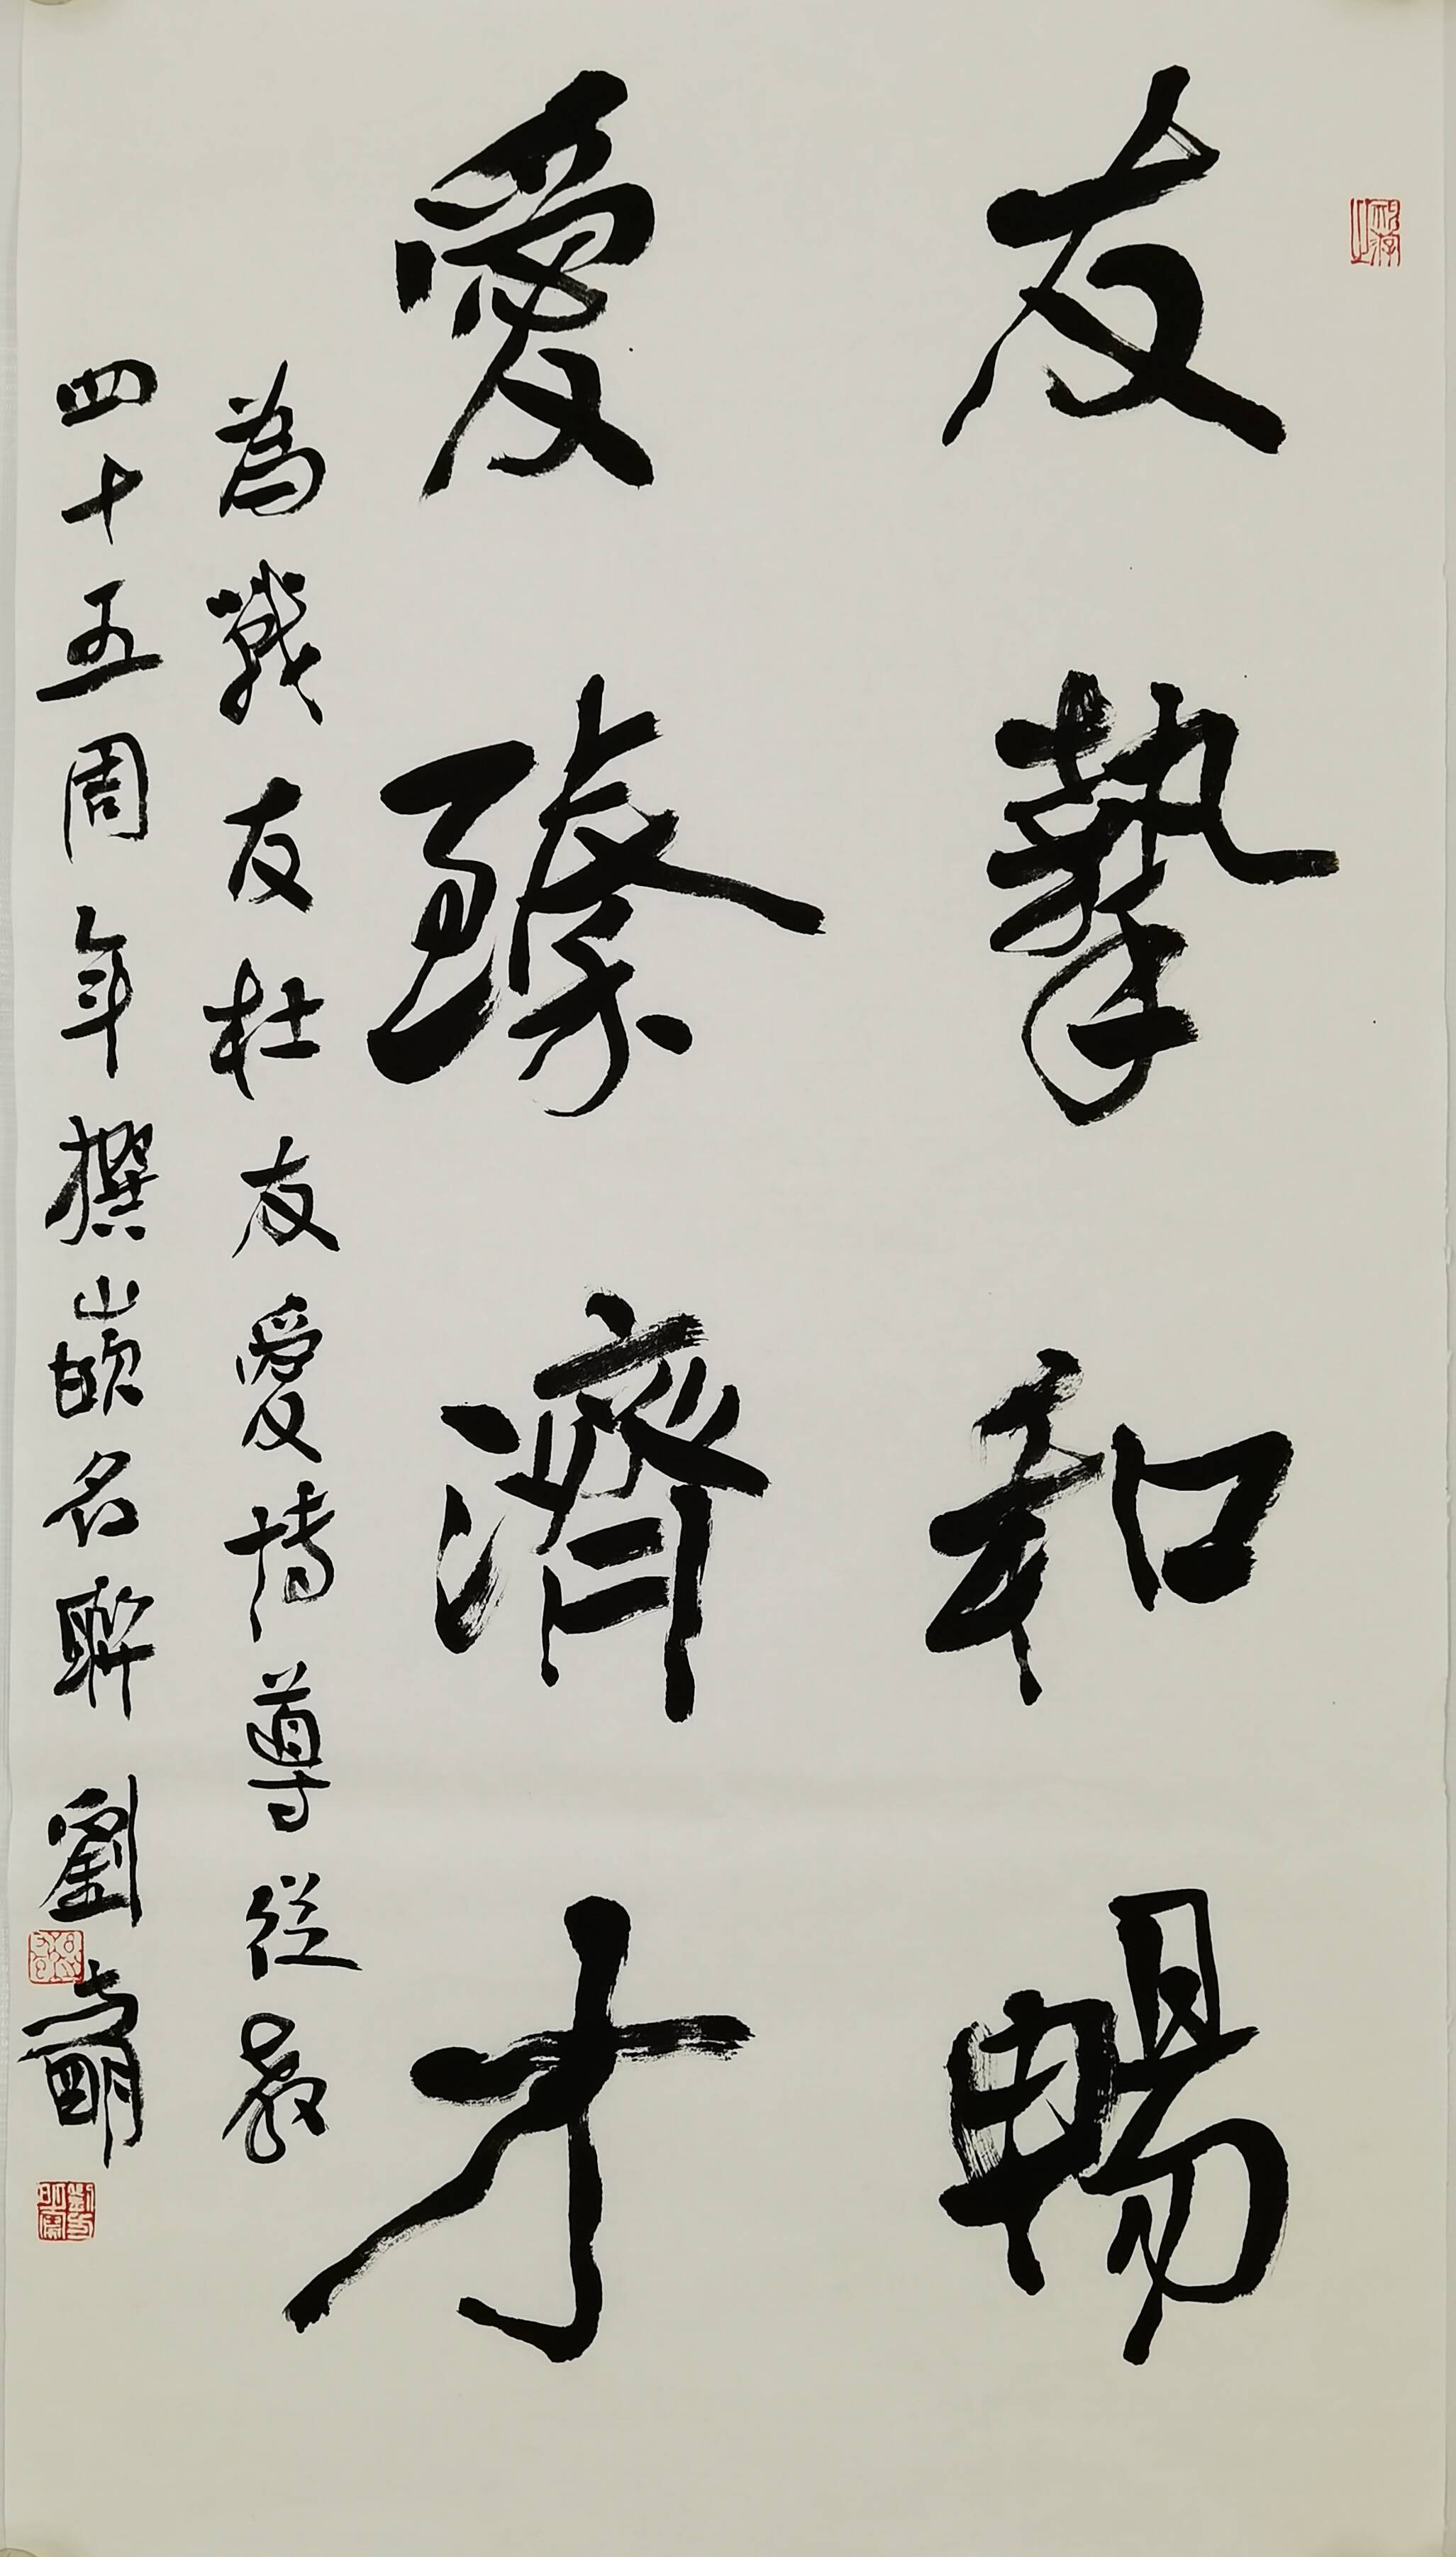 友摯和暢
愛臻濟才
為戰友杜友愛博導從教
四十五周年撰嵌名聯 劉